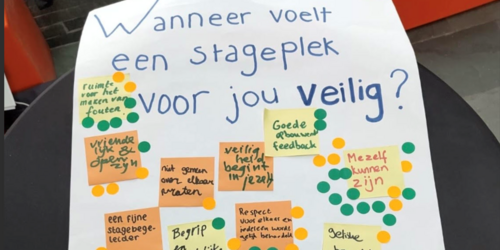 Wanneer voelt
een stageplek
voor jou veilig?
ruimte
voor het
maken van
fouten
Goede
feedback
vriende
lijk &
open
zijn
niet gemeen
over elkaar
praten
veilig
heid
begint
in jezelf
Mezelf
kunnen
zijn
een fijne
stagebege-
leider
Begrip
Respect
voor elkaar en
iedereen wordt
gelijk behandeld
gelijke